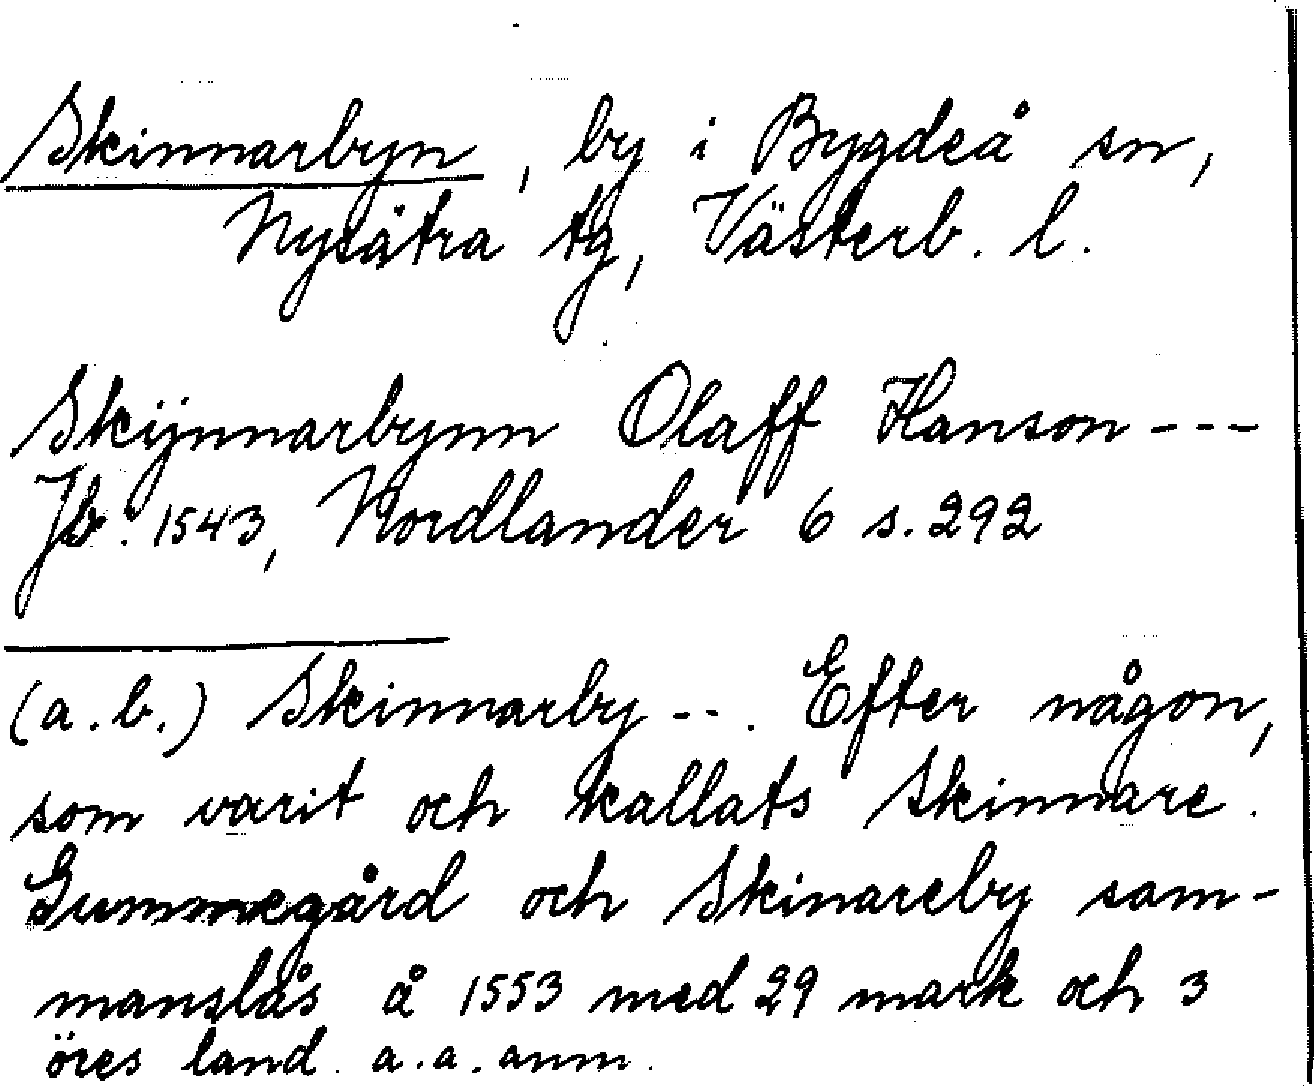 Skinnarbyn, by i Bygdeå sn,
Nysätra tg, Västerb. l.
Skijnnarbynn Olaff Hanson ---
Jb. 1543, Nordlander 6 s. 292
(a. b.) Skinnarby --. Efter någon,
som varit och kallats Skinnare.
Gummegård och Skinareby sam-
manslås å 1553 med 29 mark och 3
öres land. a. a. anm.